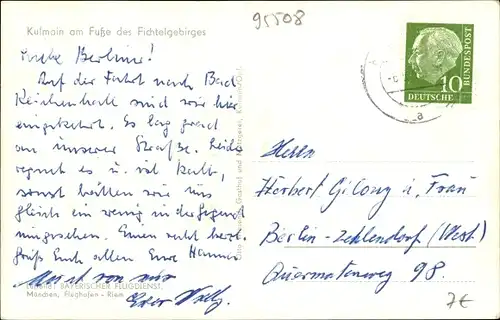 95508
Kulmain am Fuße des Fichtelgebirges
Liebe Berliner!
Auf der Fahrt nach Bad
Reichenhall sind wir hier
eingekehrt. Es lag grad
an unserer Straße. Leider
regnet es u. ist kalt,
sonst hätten wir uns
gleich ein wenig in der Gegend
umgesehen. Einen recht herzl.
Gruß Euch allen Eure Hanna
Luftbild BAYERISCHER FLUGDIENST,
München, Flughafen-Riem
10
DEUTSCHE
BUNDESPOST
Herrn
Herbert Gilony u. Frau
Berlin-Zehlendorf (West)
Quermatenweg 98.
7€